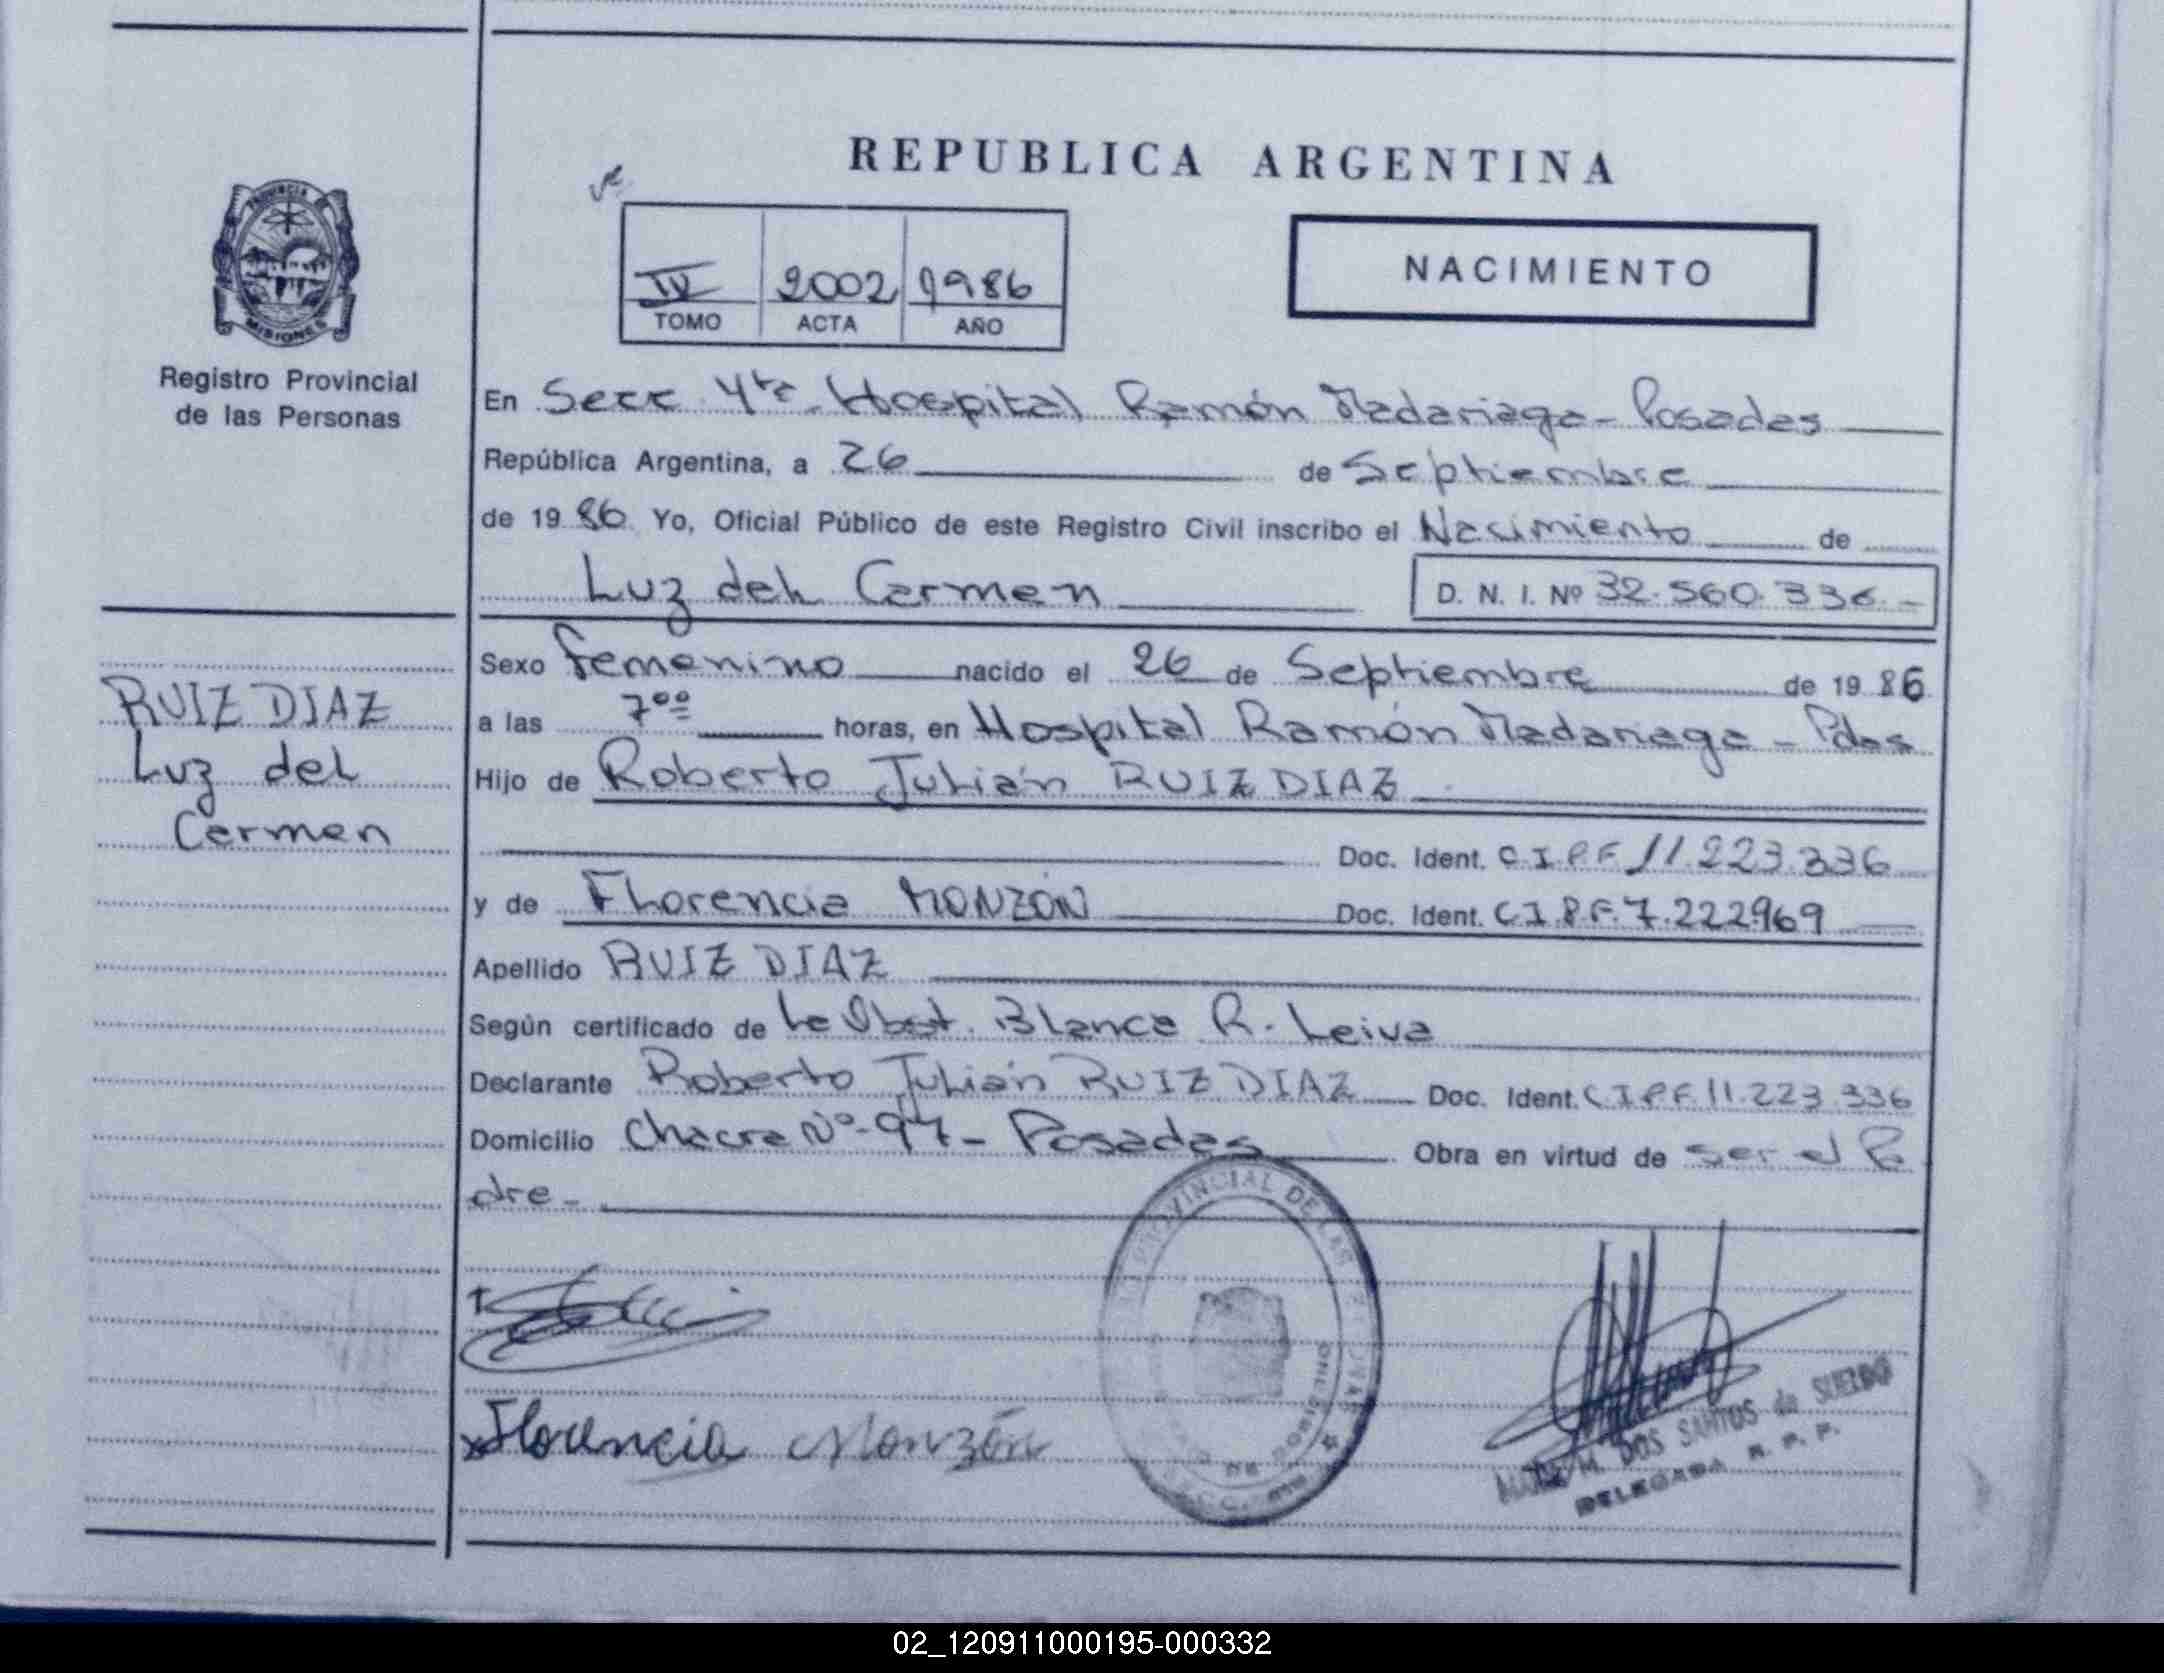 REPUBLICA ARGENTINA
PROVINCIA DE
MISIONES
Registro Provincial
de las Personas
IV 2002 1986
TOMO ACTA AÑO
NACIMIENTO
En Secc 4ta - Hospital Ramón Madariaga - Posadas
República Argentina, a 26 de Septiembre
de 1986 Yo, Oficial Público de este Registro Civil inscribo el Nacimiento de
Luz del Carmen D. N. I. Nº 32.560.336.-
RUIZ DIAZ
Luz del
Carmen
Sexo femenino nacido el 26 de Septiembre de 1986
a las 7°° horas, en Hospital Ramón Madariaga - Pdas
Hijo de Roberto Julián RUIZ DIAZ
Doc. Ident. C.I.P.F 11.223.336
y de Florencia MONZÓN Doc. Ident. C.I.P.F. 7.222969
Apellido RUIZ DIAZ
Según certificado de La Obst. Blanca R. Leiva
Declarante Roberto Julián RUIZ DIAZ Doc. Ident. C.I.P.F. 11.223.336
Domicilio Chacra Nº-97- Posadas Obra en virtud de ser el Pa
dre-
PROVINCIAL DE LAS
Florencia Monzón
M. DOS SANTOS de SUELDO
DELEGADA R. P. P.
02_120911000195-000332